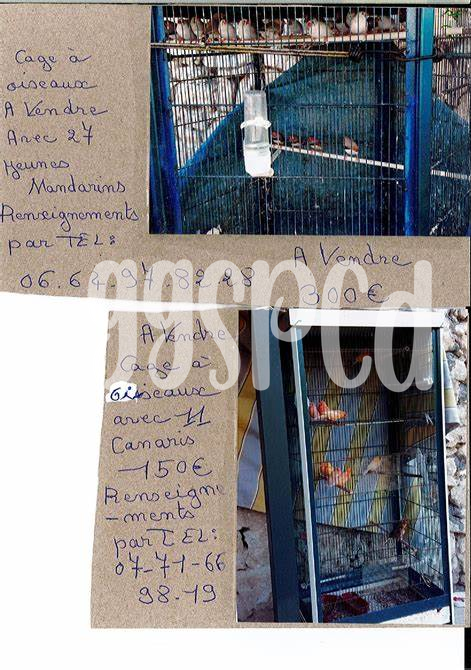 Cage à
oiseaux
A Vendre
Avec 27
jeunes
Mandarins
Renseignements
par TEL:
06.64.97.82.28
A Vendre
300€
ggspcd
A Vendre
Cage à
Oiseaux
avec 11
Canaris
-150€
Renseigne
-ments
par TEL:
07-71-66
98-19